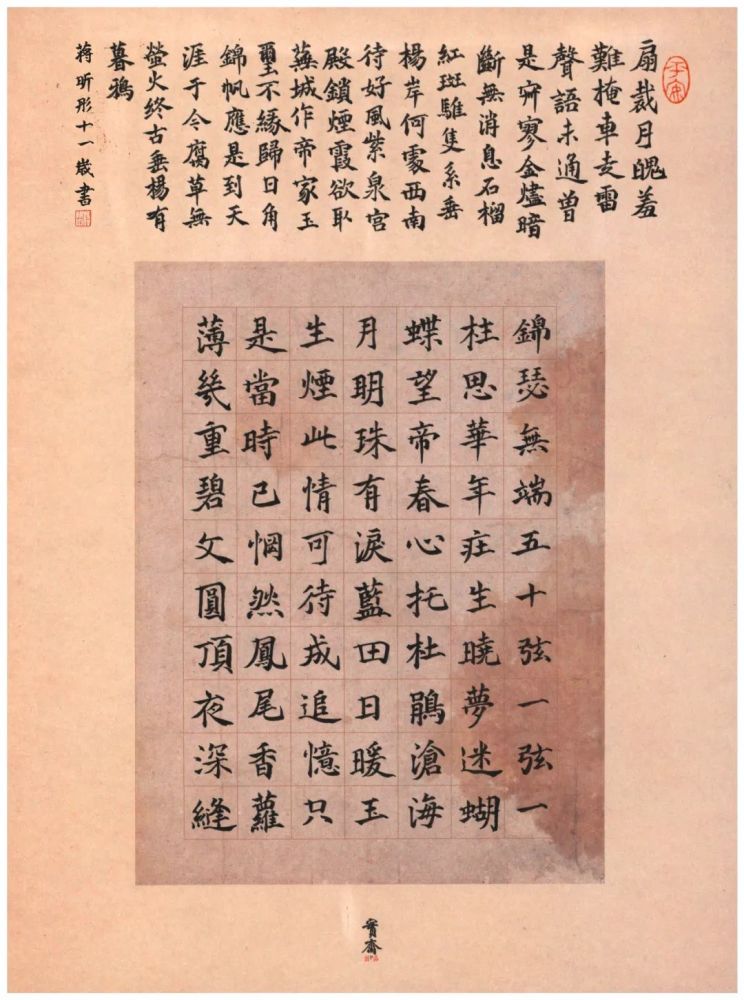 錦瑟無端五十弦一弦一
柱思華年庄生曉夢迷蝴
蝶望帝春心托杜鵑滄海
月明珠有淚藍田日暖玉
生煙此情可待成追憶只
是當時已惘然鳳尾香蘿
薄幾重碧文圓頂夜深縫
平安
扇裁月魄羞
難掩車走雷
聲語未通曾
是寂寥金燼暗
斷無消息石榴
紅斑騅隻系垂
楊岸何處西南
待好風紫泉宮
殿鎖煙霞欲取
蕪城作帝家玉
璽不緣歸日角
錦帆應是到天
涯于今腐草無
螢火終古垂楊有
暮鴉
蔣昕彤十一歲書